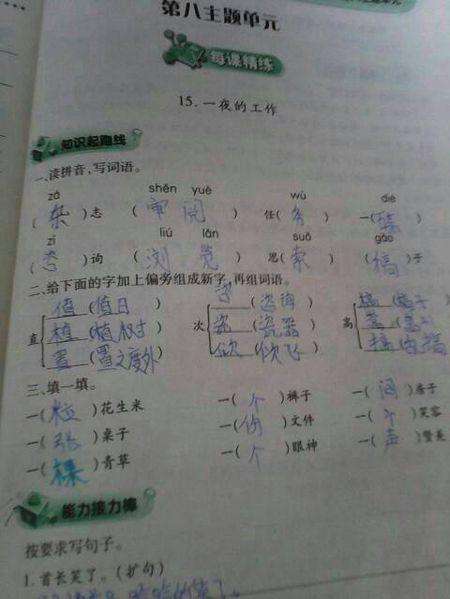 第八主题单元
每课精练
15.一夜的工作
知识起跑线
一、读拼音,写词语。
zá shěn yuè wù dié
(杂)志 (审阅) 任(务) 一(
zī liú lǎn suǒ gǎo
(咨)询 (浏览) 思(索) (稿)子
二、给下面的字加上偏旁组成新字,再组词语。
值(值日)
直 植(植树) 次 瓷(瓷器) 高
置(置之度外)
三、填一填。
一(粒)花生米 一(个)裤子 一(间)房子
一(张)桌子 一(份)文件 一(个)笑容
一(棵)青草 一(个)眼神 一(声)
能力接力棒
按要求写句子。
1.首长笑了。(扩句)